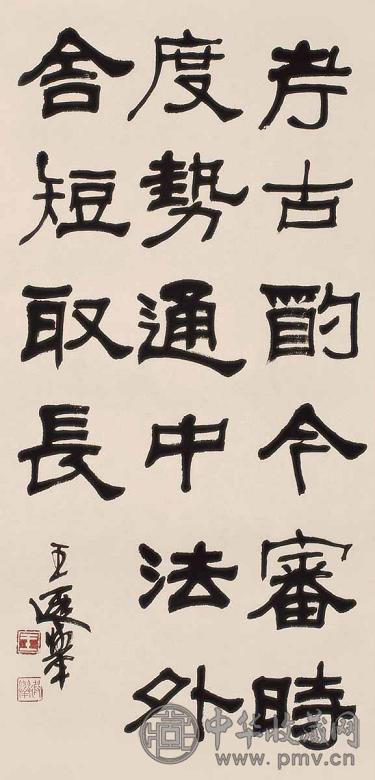 考古酌今審時
度勢通中法外
舍短取長
王遐舉
中华收藏网
www.pmv.cn